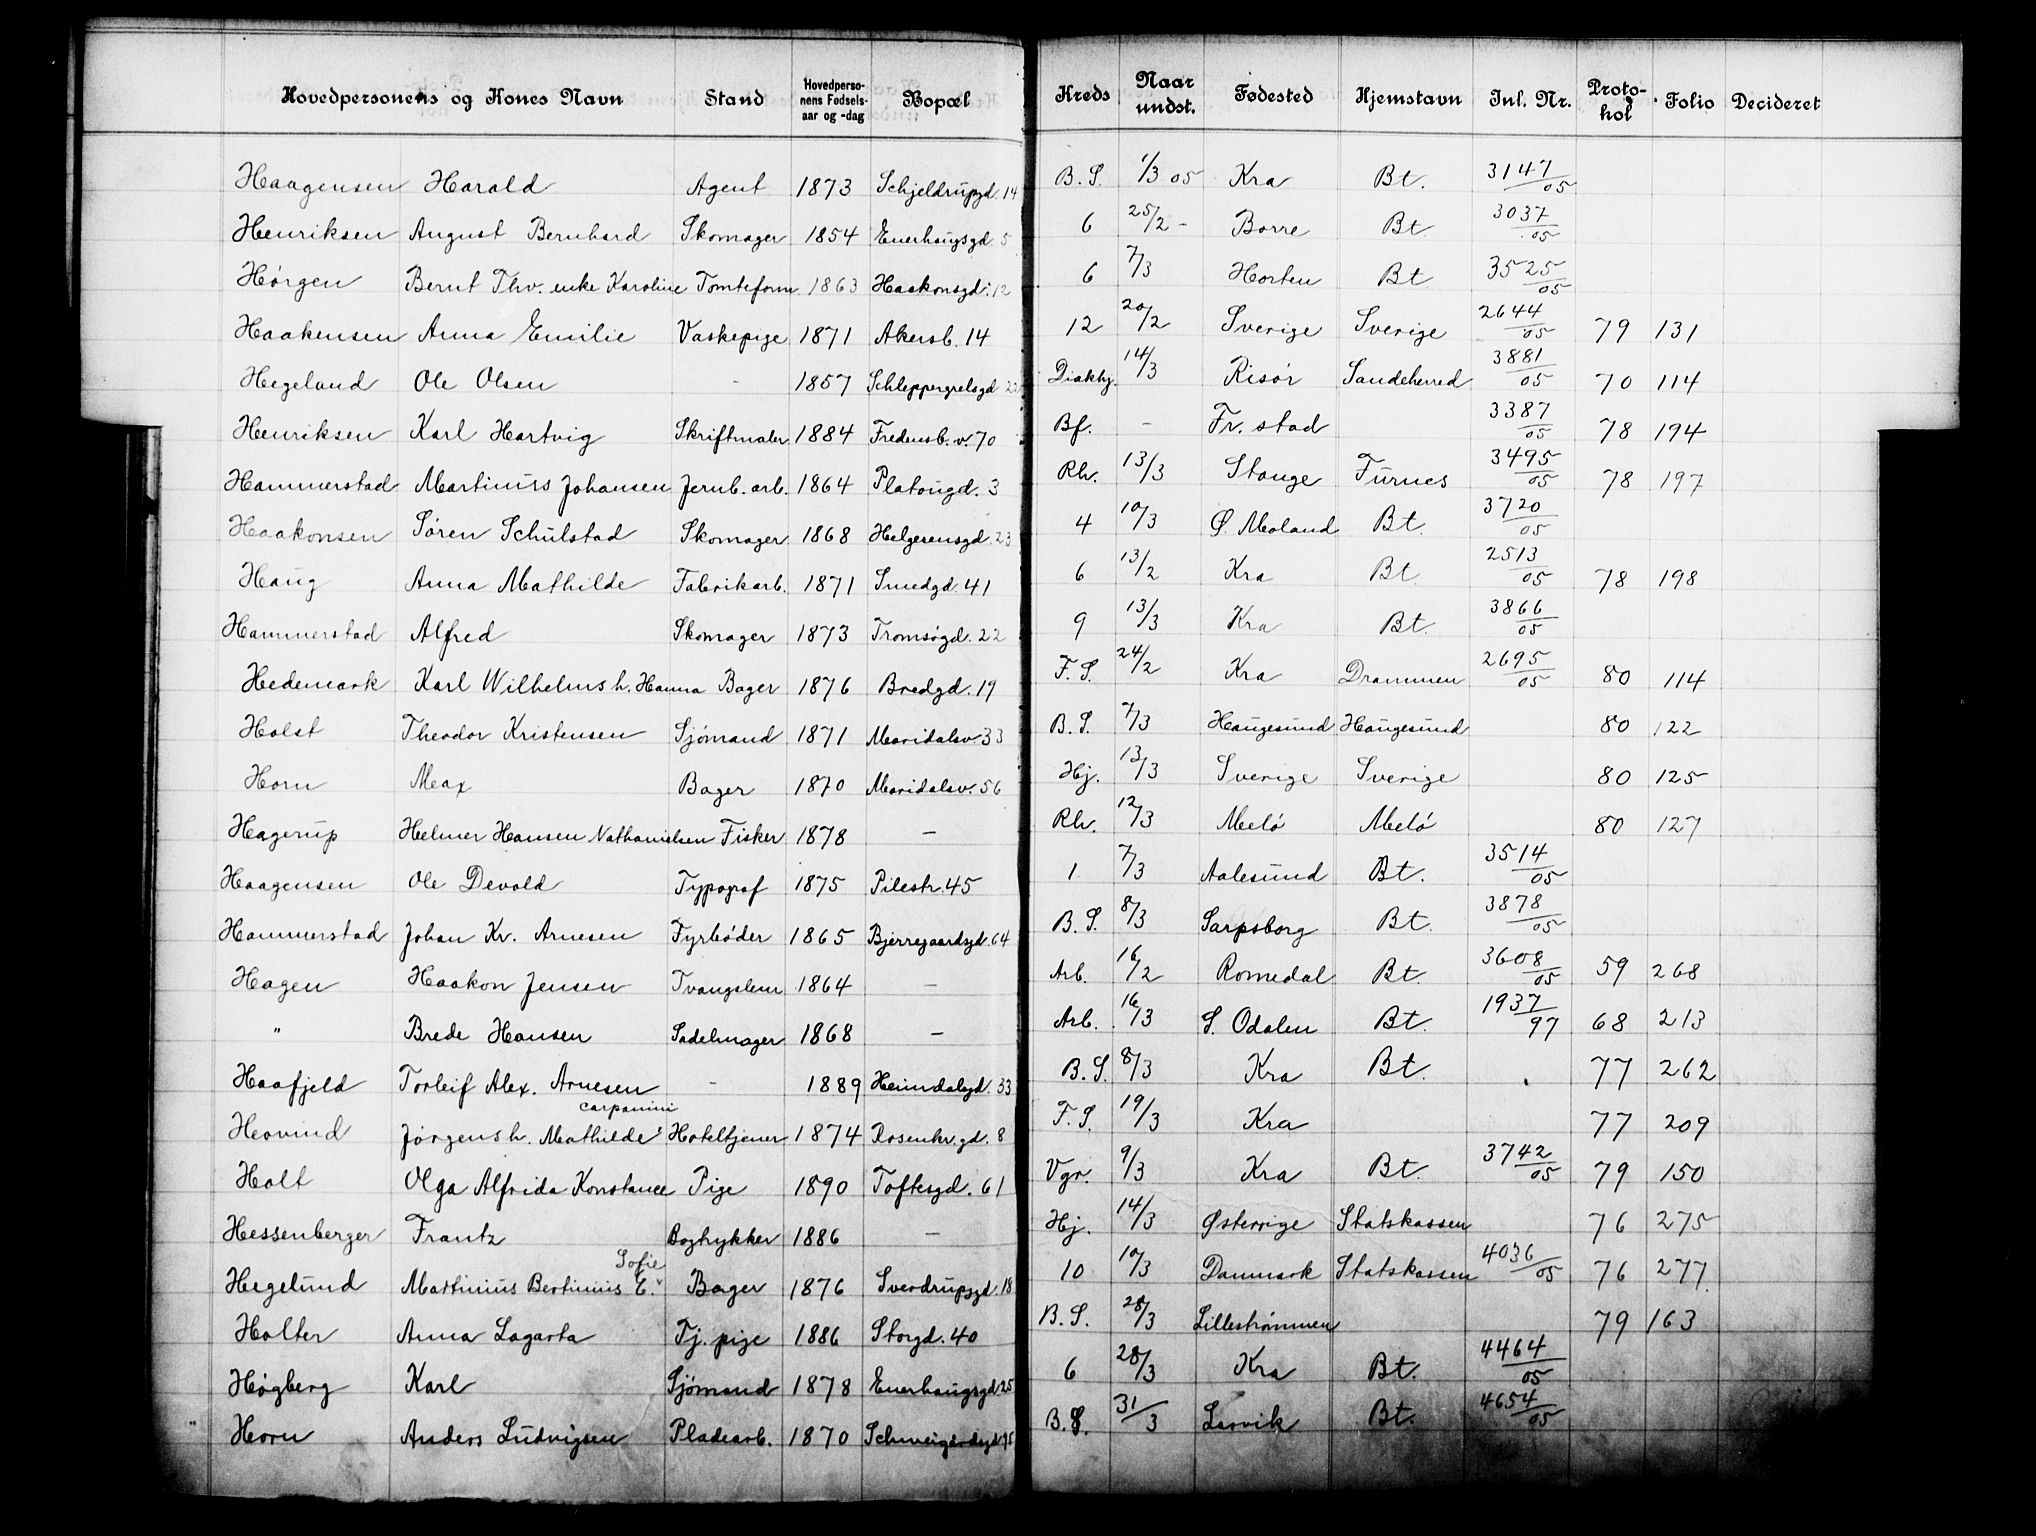 Hovedpersonens og Kones Navn Stand Hovedpersonens Fødselsaar og -dag Bopæl Kreds Naar undst. Fødested Hjemstavn Inl. Nr. Protokol Folio Decideret
Haagensen Harald Agent 1873 Schjeldrupgd. 14 B. S. 1/3 05 Kra Bt. 3147/05
Henriksen August Bernhard Skomager 1854 Enerhaugsgd. 5 6 25/2 - Borre Bt. 3037/05
Hørgen Bernt Thv. enke Karoline Tomteform 1863 Haakonsgd. 12 6 7/3 Horten Bt 3525/05
Haakensen Anna Emilie Vaskepige 1871 Akersb. 14 12 20/2 Sverige Sverige 2644/05 79 131
Hegeland Ole Olsen - 1857 Schleppegrelsgd 22 Diakhj. 14/3 Risør Sandeherred 3881/05 70 114
Henriksen Karl Hartvig Skriftmaler 1884 Fredensb. v. 70 Bf. - Fr. stad 3387/05 78 194
Hammerstad Martinus Johansen Jernb. arb. 1864 Platougd. 3 Rh. 13/3 Stange Furnes 3495/05 78 197
Haakonsen Søren Schulstad Skomager 1868 Helgerensgd. 23 4 10/3 Ø. Moland Bt. 3720/05
Haug Anna Mathilde Fabrikarb. 1871 Smedgd. 41 6 13/2 Kra Bt. 2513/05 78 198
Hammerstad Alfred Skomager 1873 Tromsøgd. 22 9 13/3 Kra Bt. 3866/05
Hedemark Karl Wilhelm s h. Hanna Bager 1876 Bredgd. 19 F. S. 24/2 Kra Drammen 2695/05 80 114
Holst Theodor Kristensen Sjømand 1871 Maridalsv. 33 B. S. 7/3 Haugesund Haugesund 80 122
Horn Max Bager 1870 Maridalsv. 56 Hj. 13/3 Sverige Sverige 80 125
Hagerup Helmer Hansen Nathanielsen Fisker 1878 - Rh. 12/3 Melø Melø 80 127
Haagensen Ole Devold Typograf 1875 Pilestr. 45 1 7/3 Aalesund Bt. 3514/05
Hammerstad Johan Kr. Arnesen Fyrbøder 1865 Bjerregaardsgd. 64 B. S. 8/3 Sarpsborg Bt. 3878/05
Hagen Haakon Jensen Tvangslem 1864 - Arb. 16/2 Romedal Bt. 3608/05 59 268
" Brede Hansen Sadelmager 1868 - Arb. 16/3 S. Odalen Bt. 1937/97 68 213
Haafjeld Torleif Alex. Arnesen - 1889 Heimdalsgd. 33 B. S. 8/3 Kra Bt. 77 262
carpanini
Hovind Jørgen s h. Mathilde Hoteltjener 1874 Rosenkr. gd. 8 F. S. 19/3 Kra 77 209
Holt Olga Alfrida Konstance Pige 1890 Toftesgd. 61 Vgr. 9/3 Kra Bt. 3742/05 79 150
Hessenberger Frantz Bogtrykker 1886 - Hj. 14/3 Østerrige Statskassen 76 275
Sofie
Hegelund Martinius Bertinius E. Bager 1876 Sverdrupsgd. 18 10 10/3 Danmark Statskassen 4036/05 76 277
Holter Anna Lagarta Tj. pige 1886 Storgd. 40 B. S. 28/3 Lillestrømmen 79 163
Høgberg Karl Sjømand 1878 Enerhaugsgd 25 6 28/3 Kra Bt. 4464/05
Horn Anders Ludvigsen Pladearb. 1870 B. S. 31/3 Larvik Bt. 4654/05